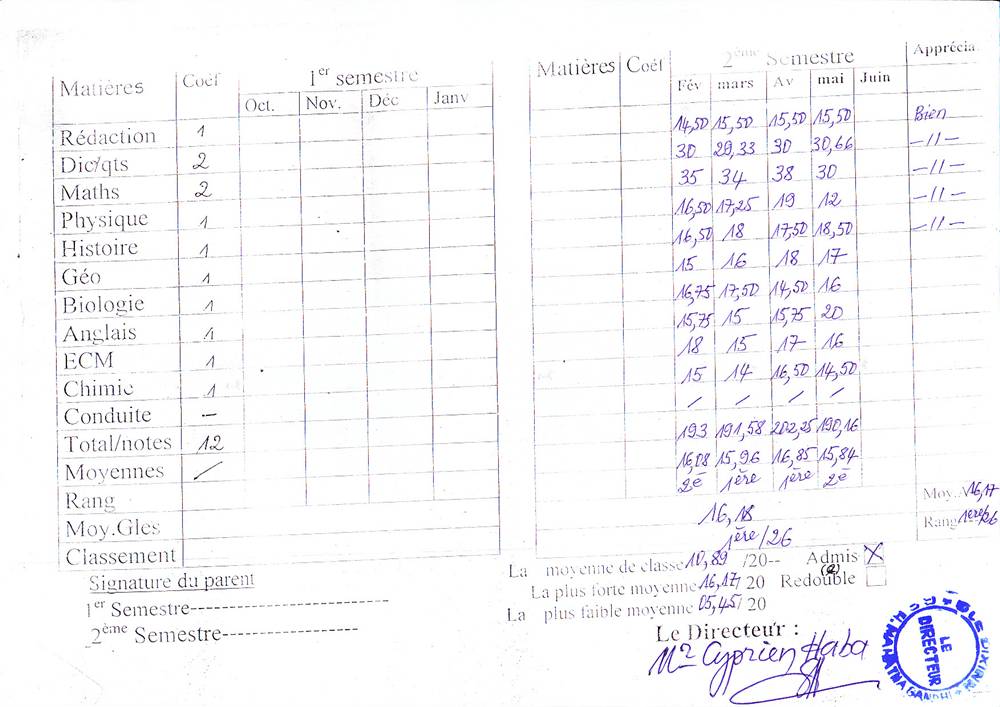 Matières Coéf 1er semestre
Oct. Nov. Déc Janv
Rédaction 1
Dic/qts 2
Maths 2
Physique 1
Histoire 1
Géo 1
Biologie 1
Anglais 1
ECM 1
Chimie 1
Conduite —
Total/notes 12
Moyennes /
Rang
Moy.Gles
Classement
Signature du parent
1er Semestre-----------------------------
2ème Semestre--------------------
Matières Coéf 2ème Semestre Apprécia.
Fév mars Av mai Juin
14,50 15,50 15,50 15,50 Bien
30 29,33 30 30,66 -//-
35 34 38 30 -//-
16,50 17,25 19 12 -//-
16,50 18 17,50 18,50 -//-
15 16 18 17
16,75 17,50 14,50 16
15,75 15 15,75 20
18 15 17 16
15 14 16,50 14,50
/ / / /
193 191,58 202,25 190,16
16,08 15,96 16,85 15,84
2è 1ère 1ère 2è
Moy. 16,17
16,18
Rang 1ère/26
1ère/26
La moyenne de classe 10,89 /20-- Admis X
(e)
La plus forte moyenne 16,17/ 20 Redouble
La plus faible moyenne 05,45/ 20
Le Directeur :
Mr Cyprien Haba
LE
DIRECTEUR